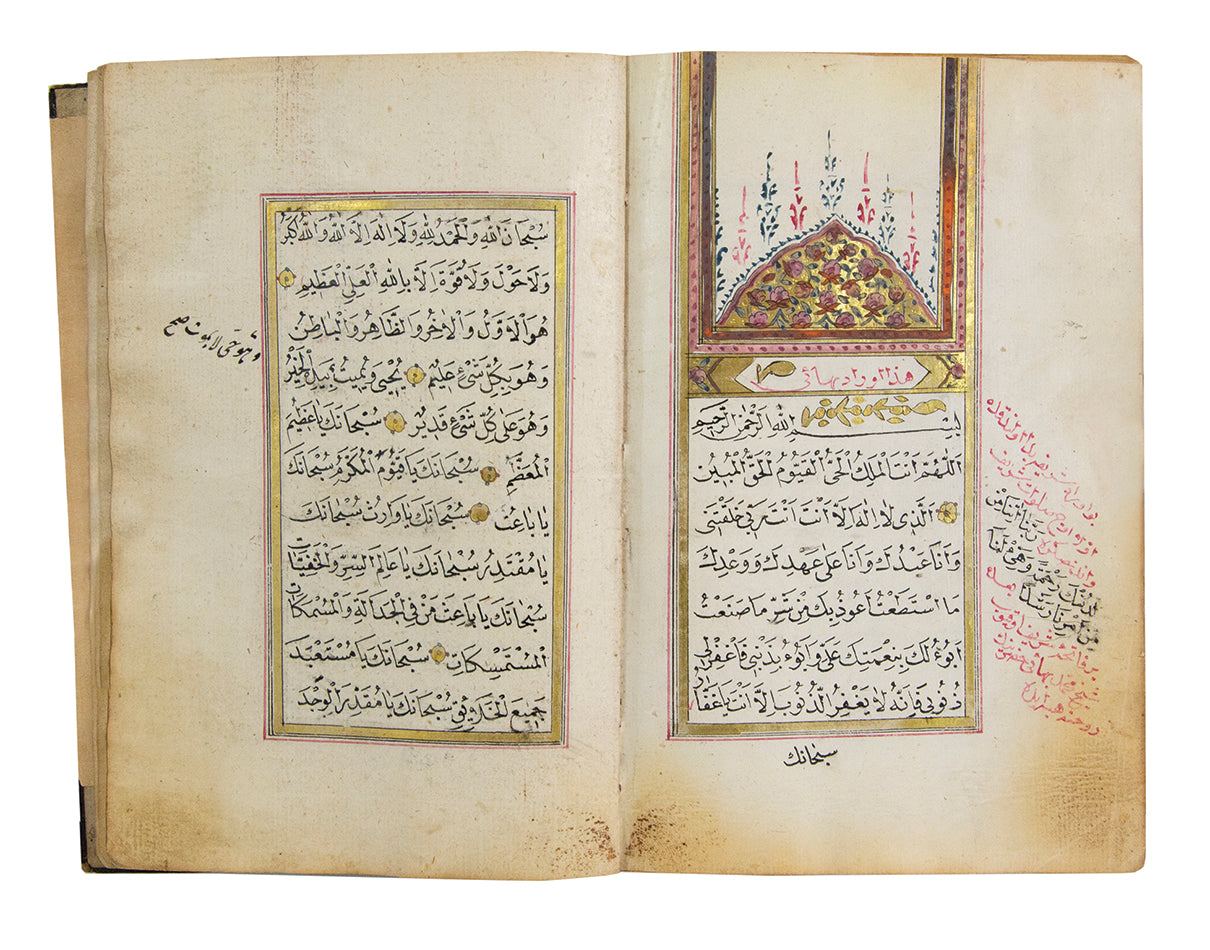 هذا اوراد بهائى
بسم الله الرحمن الرحيم
اَللّٰهُمَّ اَنْتَ الْمَلِكُ الْحَىُّ الْقَيُّومُ الْحَقُّ الْمُبِينُ
اَلَّذِى لَا اِلٰهَ اِلَّا اَنْتَ اَنْتَ رَبِّى خَلَقْتَنِى
وَاَنَا عَبْدُكَ وَاَنَا عَلٰى عَهْدِكَ وَوَعْدِكَ
مَا اسْتَطَعْتُ اَعُوذُ بِكَ مِنْ شَرِّ مَا صَنَعْتُ
اَبُوءُ لَكَ بِنِعْمَتِكَ عَلَىَّ وَاَبُوءُ بِذَنْبِى فَاغْفِرْ لِى
ذُنُوبِى فَاِنَّهُ لَا يَغْفِرُ الذُّنُوبَ اِلَّا اَنْتَ يَا غَفَّارُ
سبحانك
رَبَّنَا اٰتِنَا مِنْ
لَدُنْكَ رَحْمَةً وَهَيِّئْ لَنَا
مِنْ اَمْرِنَا رَشَدًا
سُبْحَانَ اللهِ وَالْحَمْدُ لِلّٰهِ وَلَا اِلٰهَ اِلَّا اللهُ وَاللهُ اَكْبَرُ
وَلَا حَوْلَ وَلَا قُوَّةَ اِلَّا بِاللهِ الْعَلِىِّ الْعَظِيمِ
هُوَ الْاَوَّلُ وَالْاٰخِرُ وَالظَّاهِرُ وَالْبَاطِنُ
وَهُوَ بِكُلِّ شَىْءٍ عَلِيمٌ يُحْيِى وَيُمِيتُ بِيَدِهِ الْخَيْرُ
وَهُوَ عَلٰى كُلِّ شَىْءٍ قَدِيرٌ سُبْحَانَكَ يَا عَظِيمُ
الْمُعَظَّمِ سُبْحَانَكَ يَا قَيُّومُ الْمُكَرَّمُ سُبْحَانَكَ
يَا بَاعِثُ سُبْحَانَكَ يَا وَارِثُ سُبْحَانَكَ
يَا مُقْتَدِرُ سُبْحَانَكَ يَا عَالِمَ السِّرِّ وَالْخَفِيَّاتِ
سُبْحَانَكَ يَا بَاعِثَ مَنْ فِى
الْمُسْتَمْسِكَاتِ سُبْحَانَكَ يَا مُسْتَعْبِدَ
جَمِيعِ الْخَلَائِقِ سُبْحَانَكَ يَا مُقَدِّرَ الْوَجْدِ
وهو حى لا يموت صح